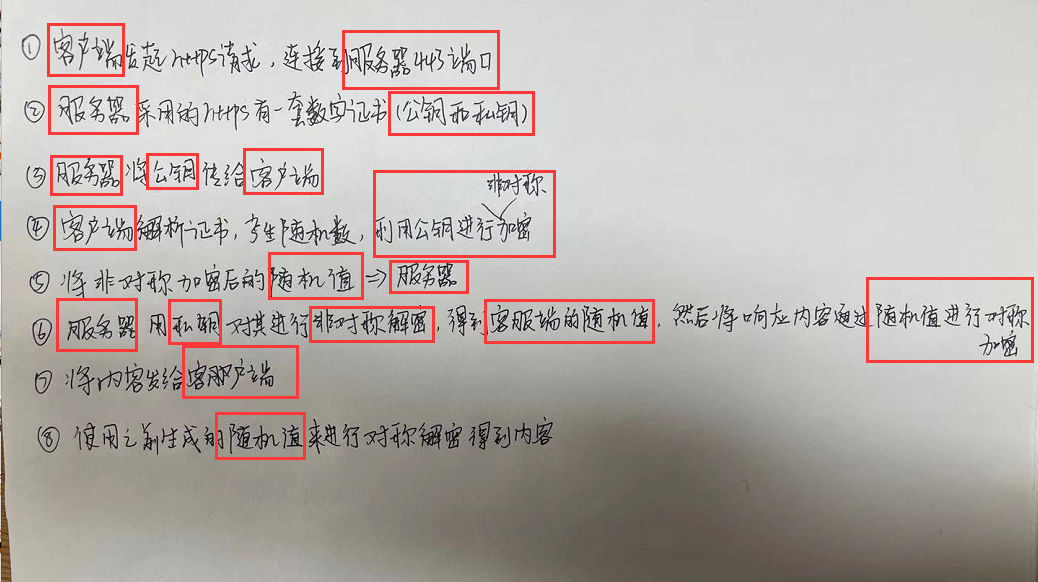 ① 客户端发起https请求，连接到服务器443端口
② 服务器采用的https有一套数字证书（公钥和私钥）
③ 服务器将公钥传给客户端
非对称
④ 客户端解析证书，产生随机数，利用公钥进行加密
⑤ 将非对称加密后的随机值 => 服务器
⑥ 服务器用私钥对其进行非对称解密，得到客服端的随机值，然后将响应内容通过随机值进行对称
加密
⑦ 将内容发给客户端
⑧ 使用之前生成的随机值来进行对称解密得到内容